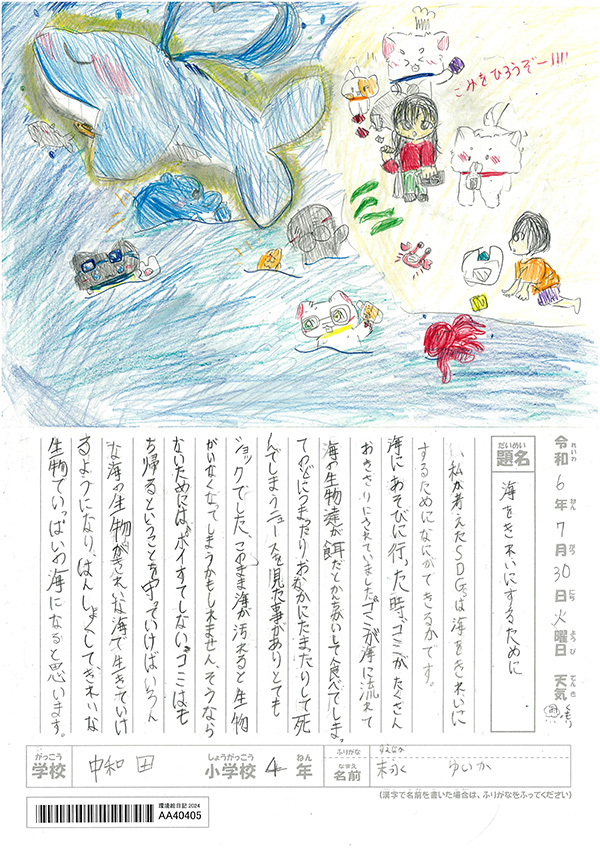 ごみをひろうぞー!!!!
令和6年7月30日火曜日 天気 くもり
れいわ ねん がつ にち ようび てんき
だいめい
題名
海をきれいにするために
私が考えたSDGsは海をきれいに
するためになにができるかです。
海にあそびに行った時、ゴミがたくさん
おきさりにされていました。ゴミが海に流れて
海の生物達が餌だとかんちがいして食べてしまっ
てのどにつまったり、おなかにたまったりして死
んでしまうニュースを見た事がありとても
ショックでした、このまま海が汚れると生物
がいなくなってしまうかもしれません、そうなら
ないためには、ポイすてしない、ゴミはも
ち帰るということを守っていけばいろん
な海の生物がきれいな海で生きていけ
るようになり、はんしょくしてきれいな
生物でいっぱいの海になると思います。
がっこう しょうがっこう ねん ふりがな すえなが
学校 中和田 小学校 4年 なまえ 名前 末永 ゆいか
(漢字で名前を書いた場合は、ふりがなをふってください)
環境絵日記2024
AA40405